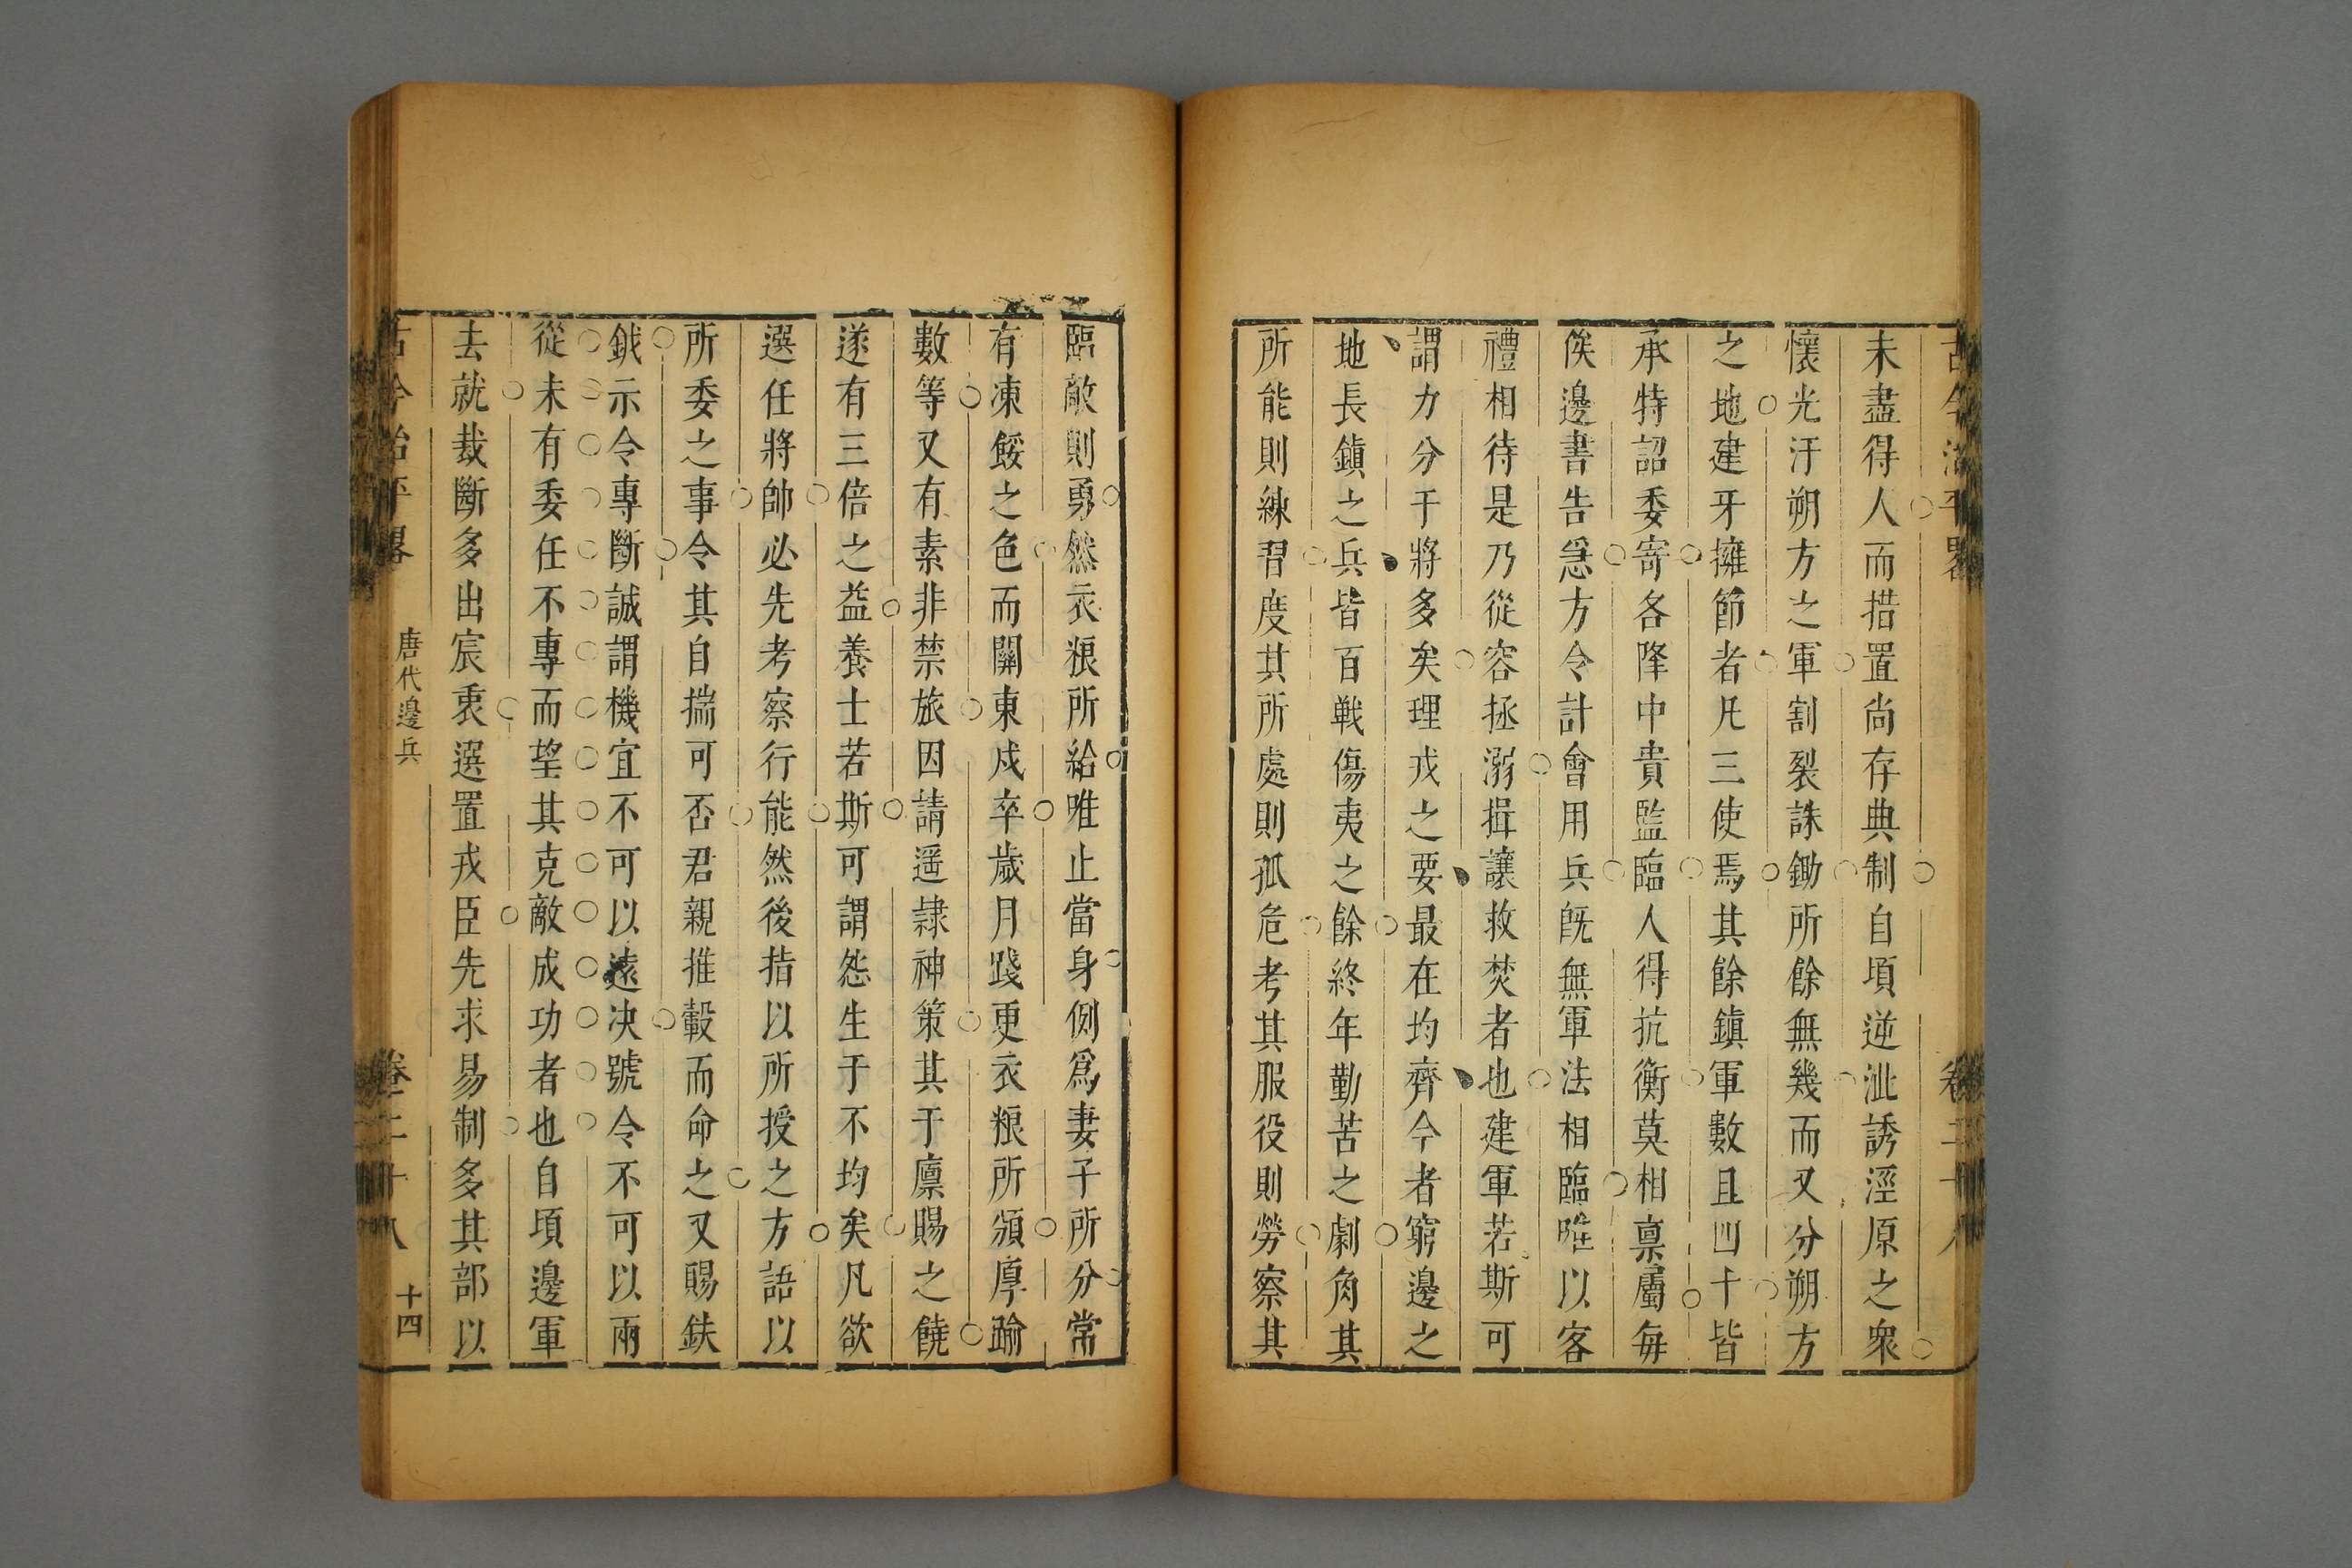 古今治平畧
卷二十八
未盡得人而措置尚存典制自頃逆泚誘涇原之衆
懷光汙朔方之軍割裂誅鋤所餘無幾而又分朔方
之地建牙擁節者凡三使焉其餘鎮軍數且四十皆
承特詔委寄各降中貴監臨人得抗衡莫相禀屬每
俟邊書告急方令計會用兵旣無軍法相臨唯以客
禮相待是乃從容拯溺揖讓救焚者也建軍若斯可
謂力分于將多矣理戎之要最在均齊今者窮邊之
地長鎮之兵皆百戦傷夷之餘終年勤苦之劇角其
所能則練習度其所處則孤危考其服役則勞察其
臨敵則勇然衣粮所給唯止當身例爲妻子所分常
有凍餒之色而關東戍卒歲月踐更衣粮所頒厚踰
數等又有素非禁旅因請遥隷神策其于廪賜之饒
遂有三倍之益養士若斯可謂怨生于不均矣凡欲
選任將帥必先考察行能然後指以所授之方語以
所委之事令其自揣可否君親推轂而命之又賜鈇
鉞示令專斷誠謂機宜不可以遠决號令不可以兩
從未有委任不專而望其克敵成功者也自頃邊軍
去就裁斷多出宸衷選置戎臣先求易制多其部以
古今治平畧
唐代邊兵
卷二十八
十四